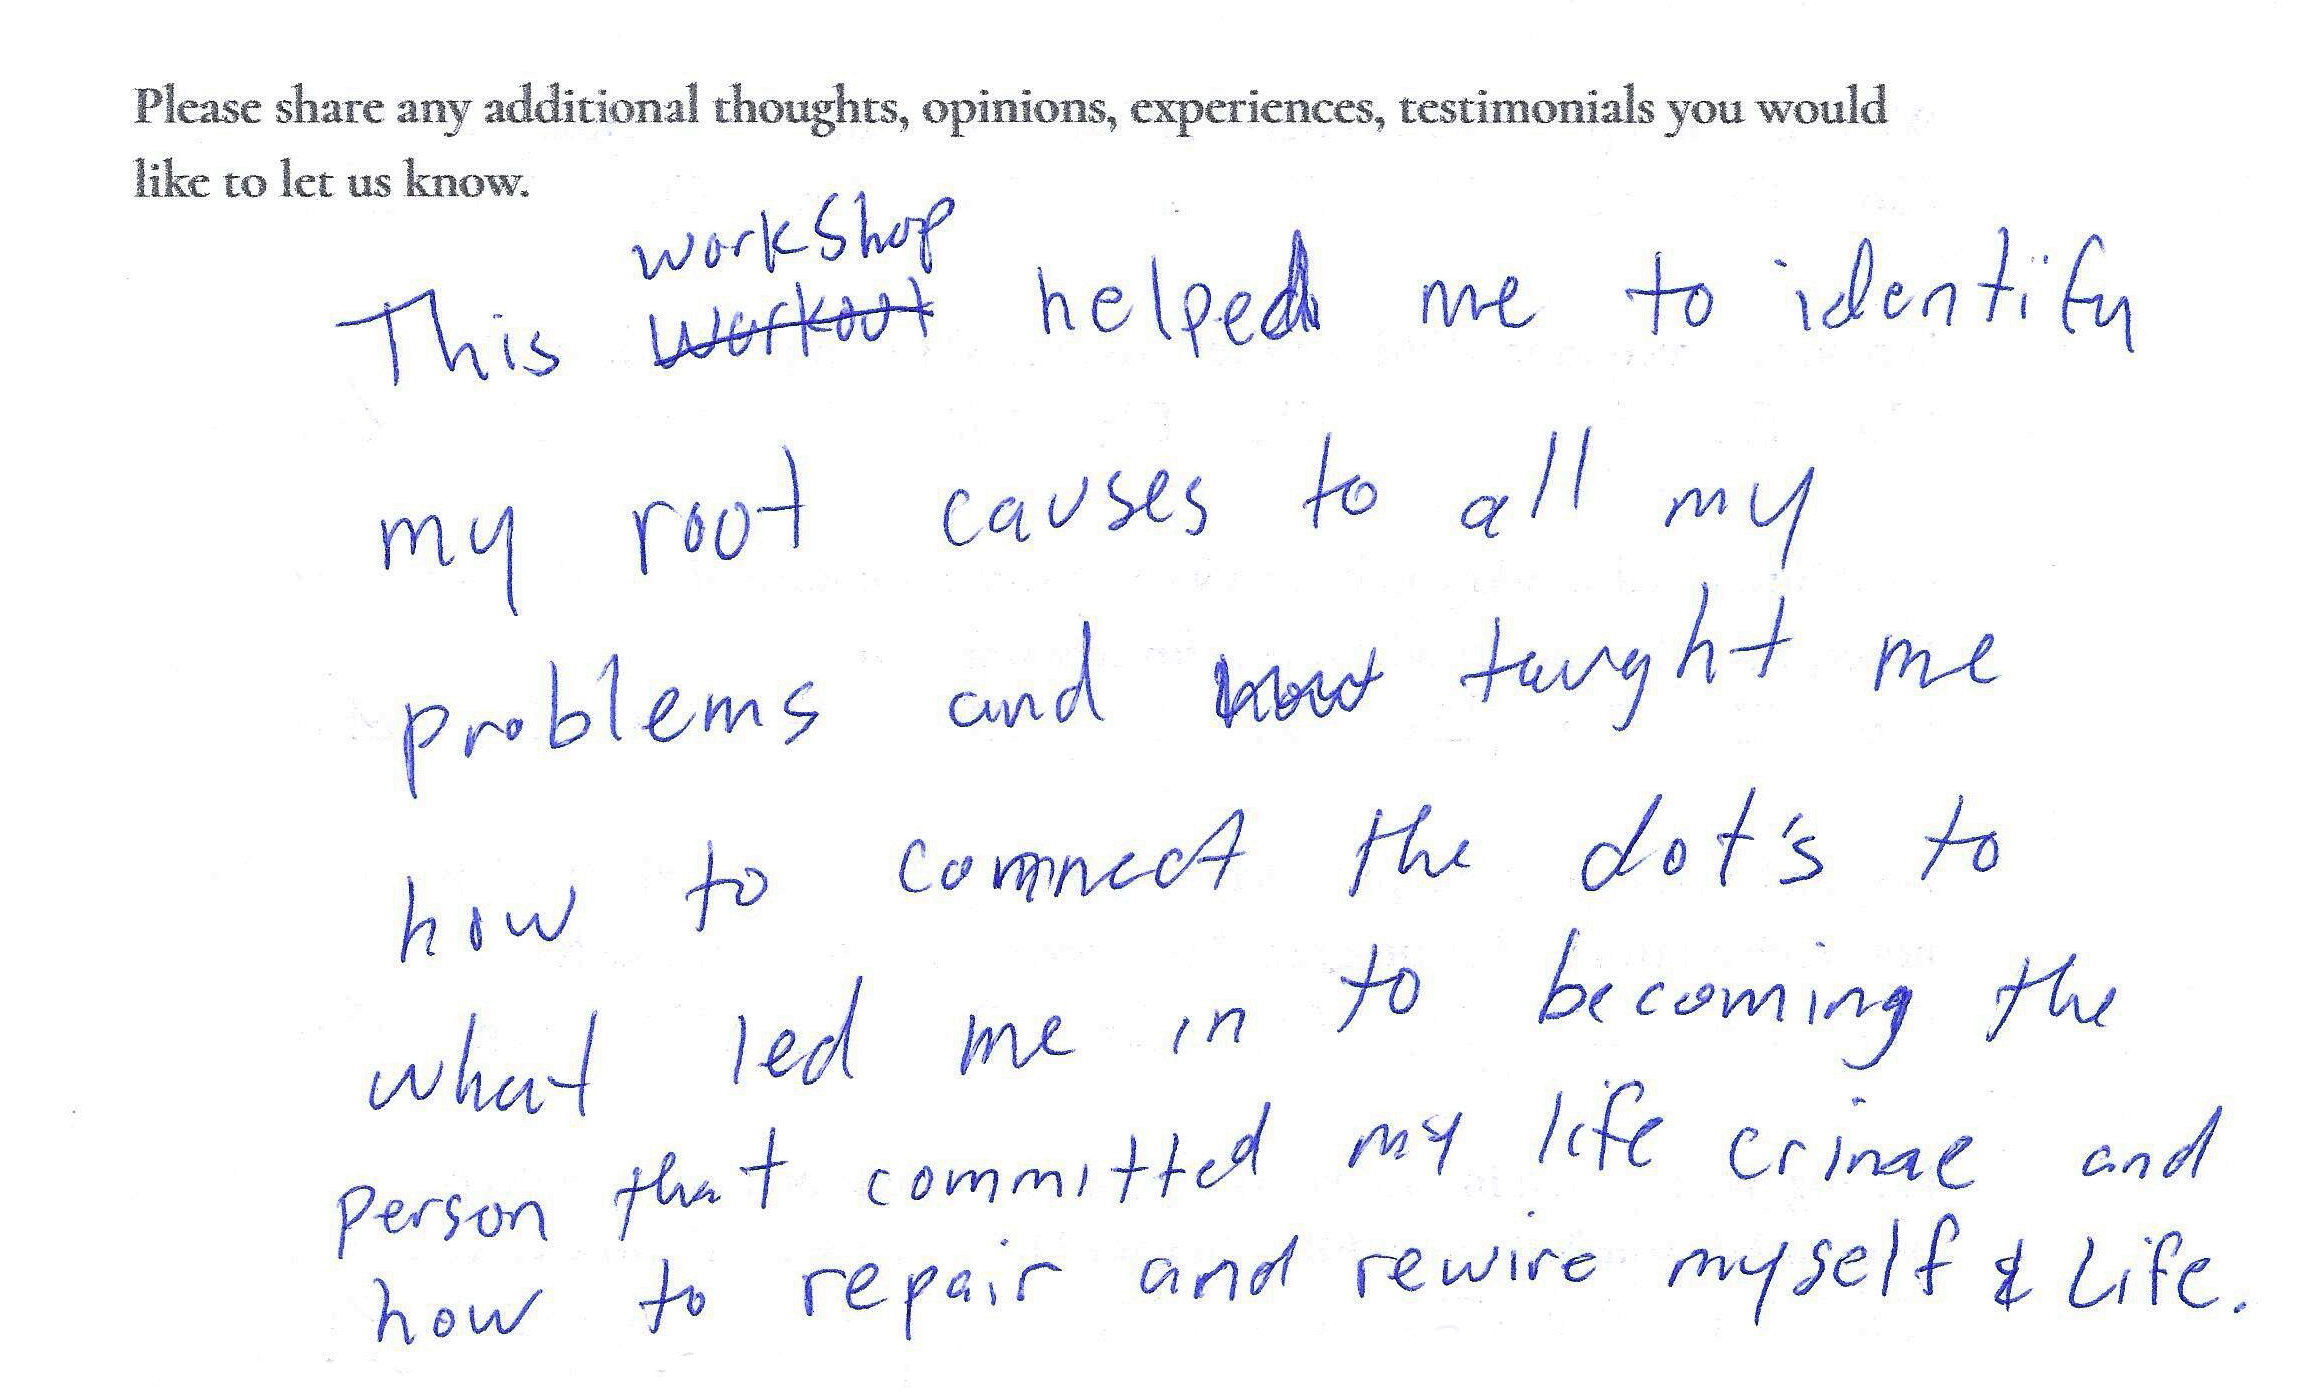 Please share any additional thoughts, opinions, experiences, testimonials you would
like to let us know.
workShop
This workout helped me to identify
my root causes to all my
problems and taught me
how to connect the dot's to
what led me in to becoming the
person that committed my life crime and
how to repair and rewire myself & Life.